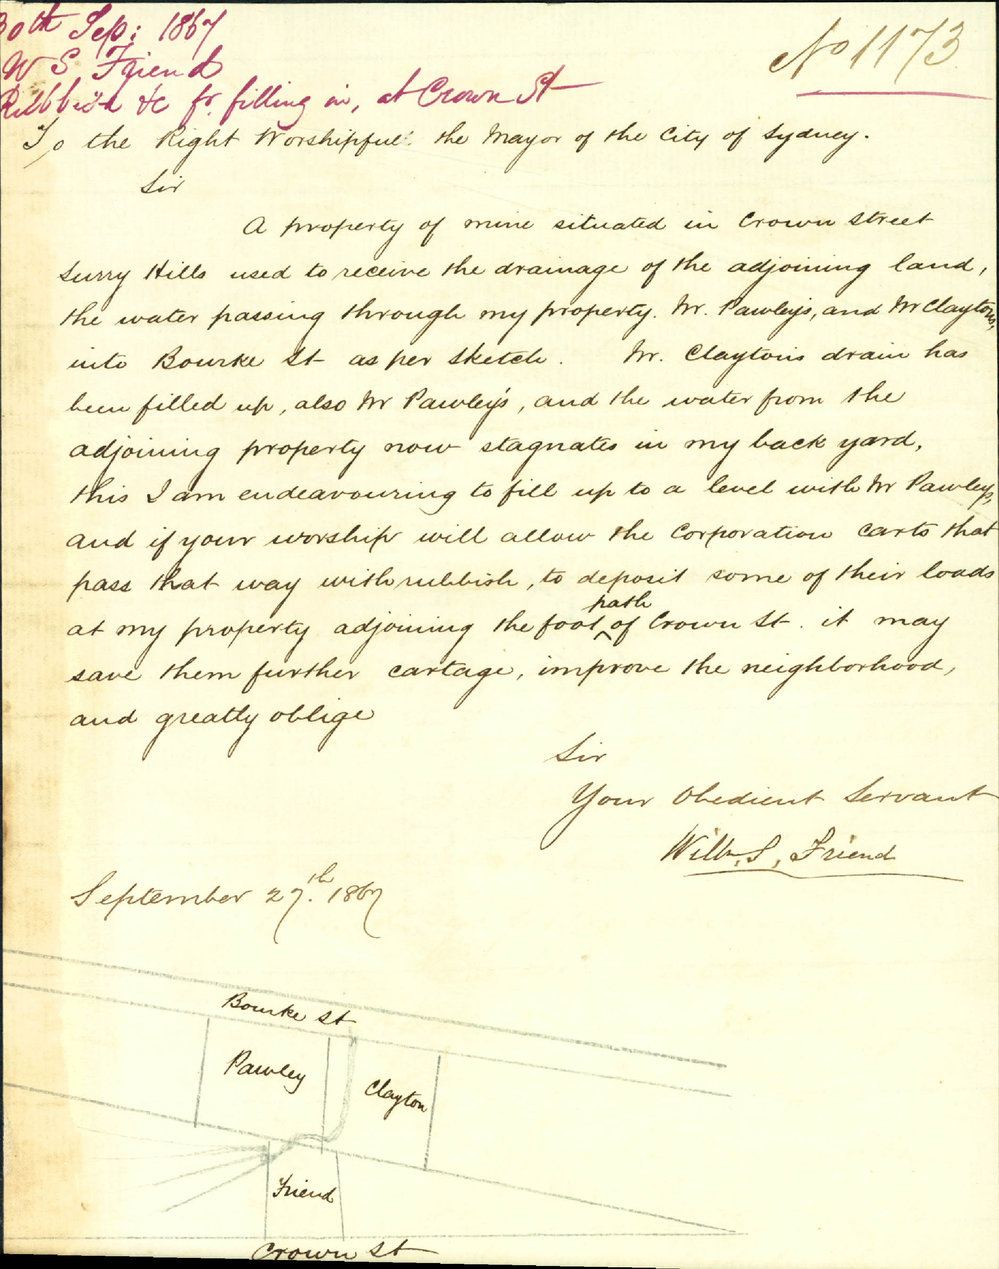 30th Sep: 1867
No 1173
W S Friend
Rubbish &c fr. filling in, at Crown St
To the Right Worshipful the Mayor of the City of Sydney.
Sir
A property of mine situated in Crown Street
Surry Hills used to receive the drainage of the adjoining land,
the water passing through my property. Mr. Pawley's, and Mr Claytons,
into Bourke St as per Sketch. Mr. Clayton's drain has
been filled up, also Mr Pawley's, and the water from the
adjoining property now stagnates in my back yard,
this I am endeavouring to fill up to a level with Mr Pawleys,
and if your worship will allow the Corporation carts that
pass that way with rubbish, to deposit some of their loads
at my property adjoining the foot path of Crown St. it may
save them further cartage, improve the neighborhood,
and greatly oblige
Sir
Your Obedient Servant
Willm. S. Friend
September 27.th 1867
Bourke St
Pawley
Clayton
Friend
Crown St